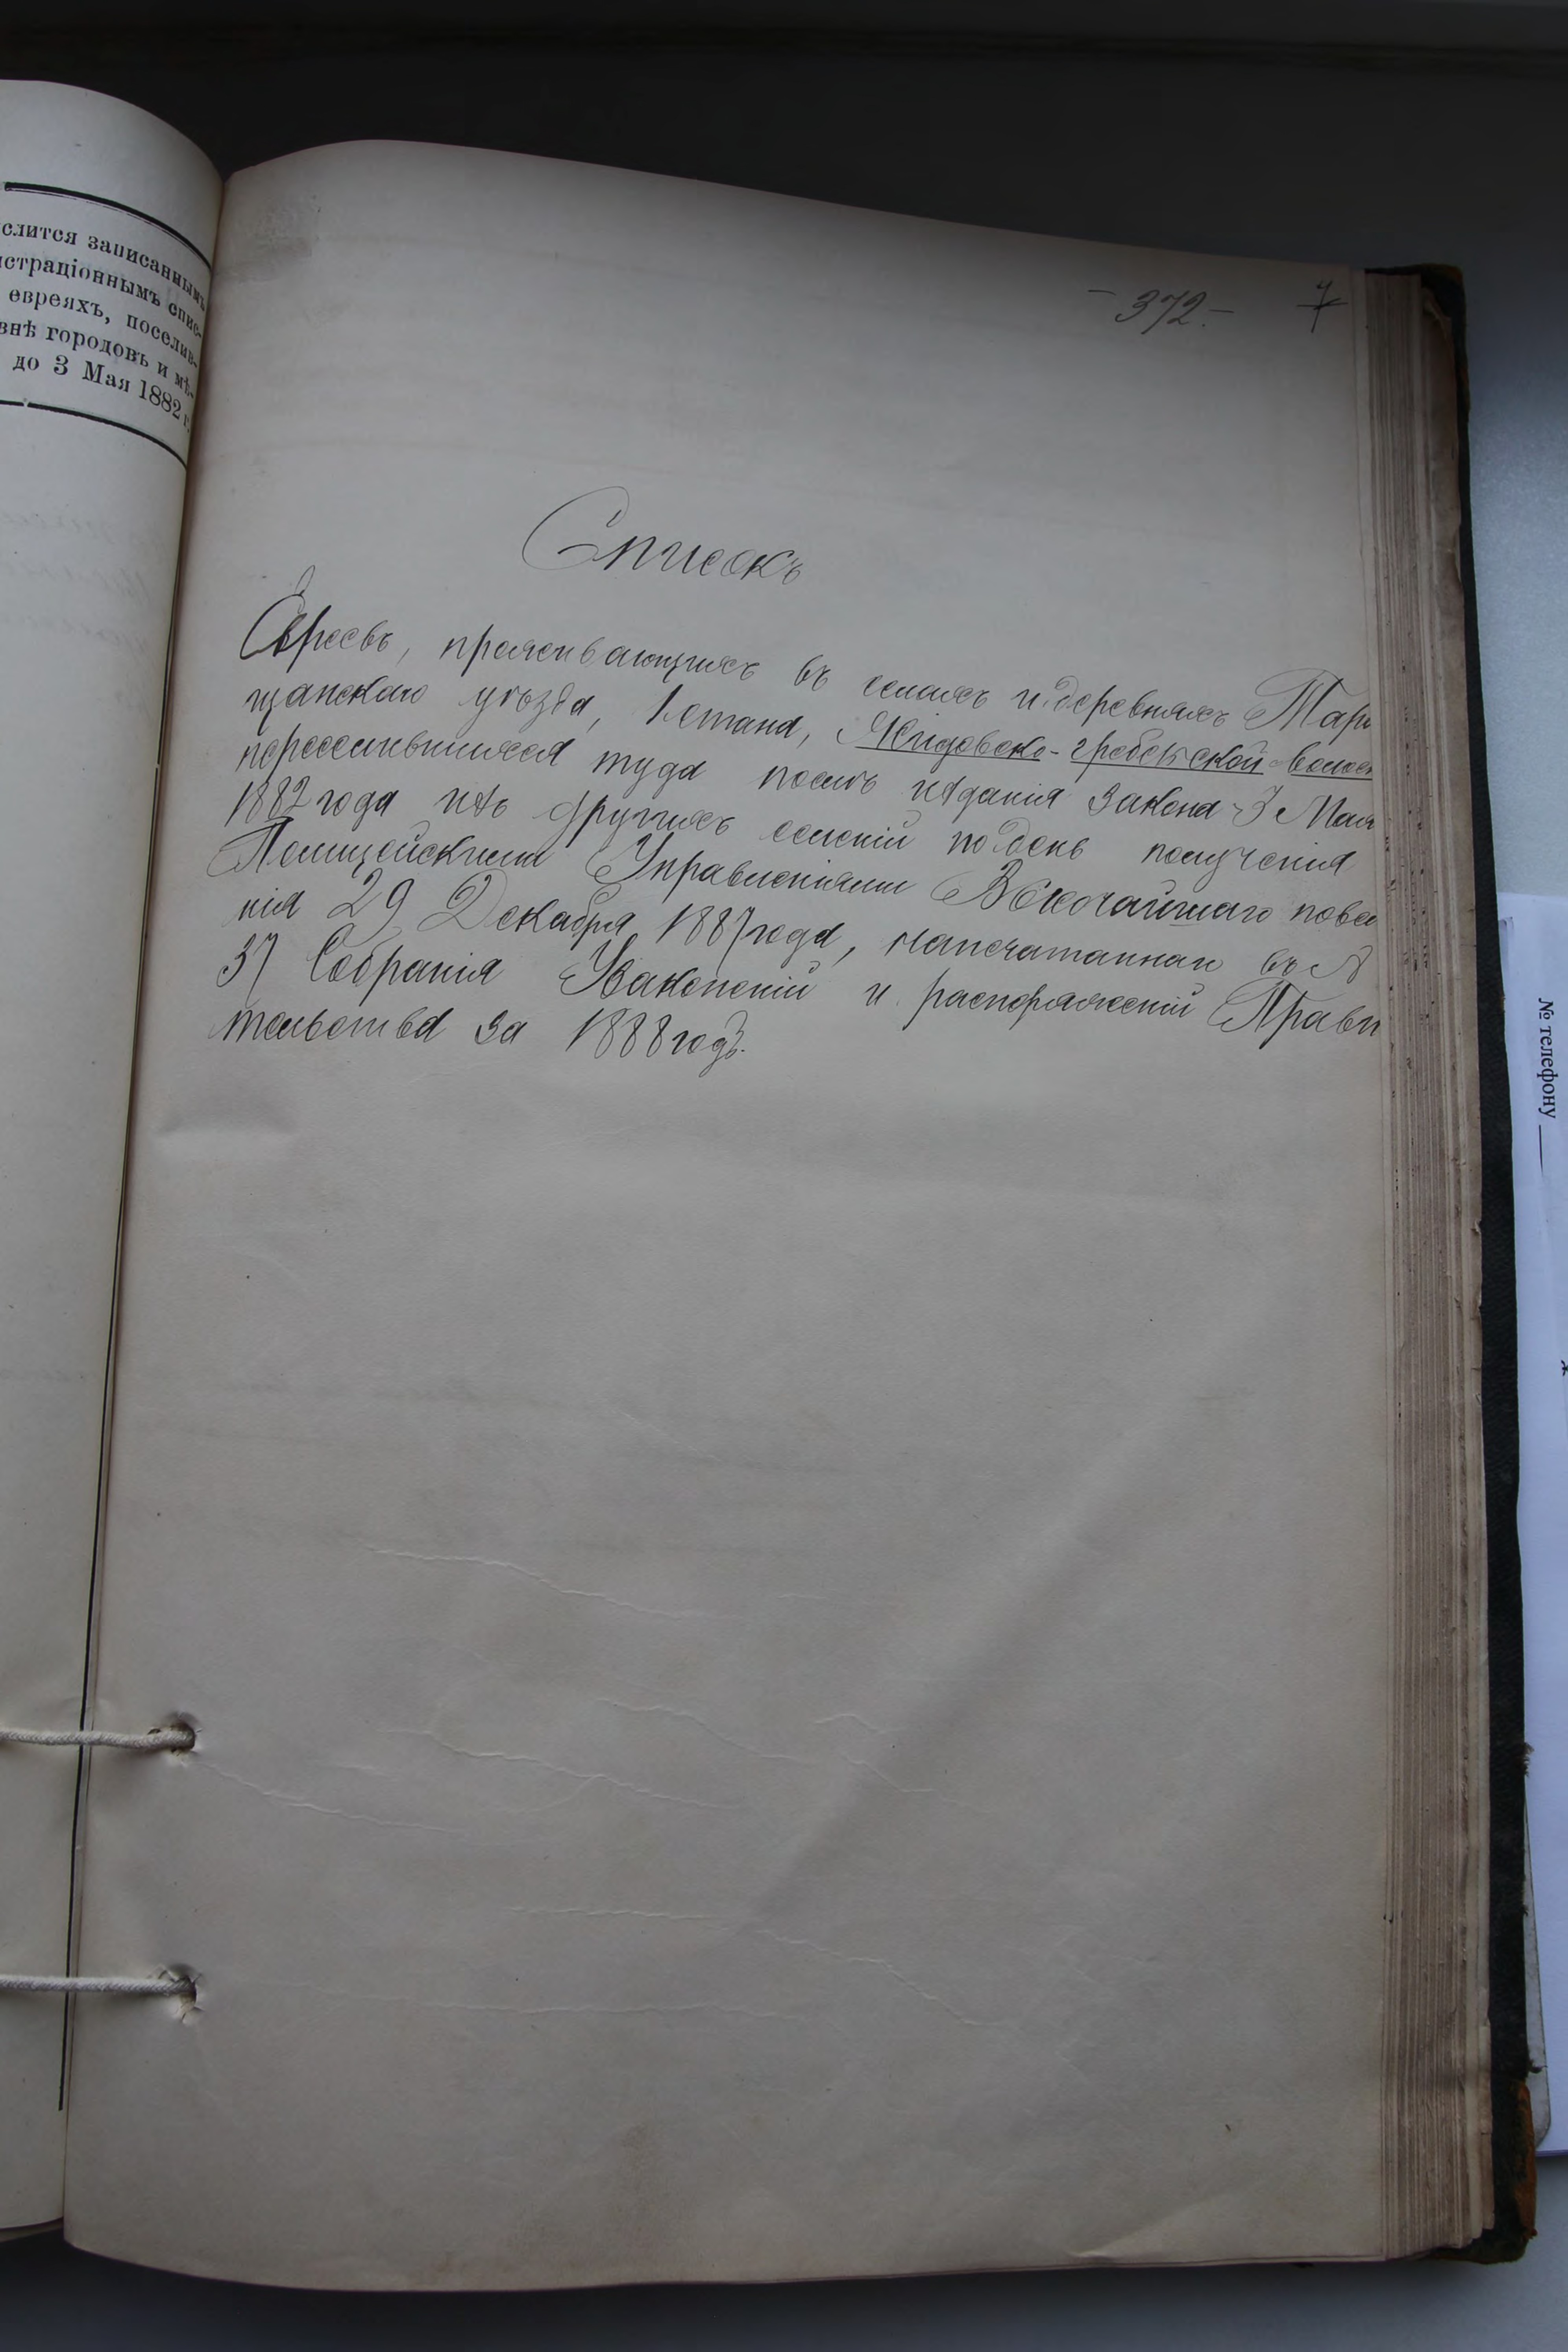 слится записаннымъ
страціоннымъ спис-
евреяхъ, поселив-
внѣ городовъ и мѣ-
до 3 Мая 1882 г.
- 372.-
Списокъ
Евреевъ, проживающихъ въ селахъ и деревняхъ Тара
щанскаго уѣзда, 1 стана, Жидовско-гребельской волос
переселившихся туда послѣ изданія закона 3 Мая
1882 года изъ другихъ селеній по день полученія
Полицейскими Управленіями Высочайшаго пове
нія 29 Декабря 1887 года, напечатаннаго въ №
37 Собранія Узаконеній и распоряженій Прави
тельства за 1888 годъ.
№ телефону